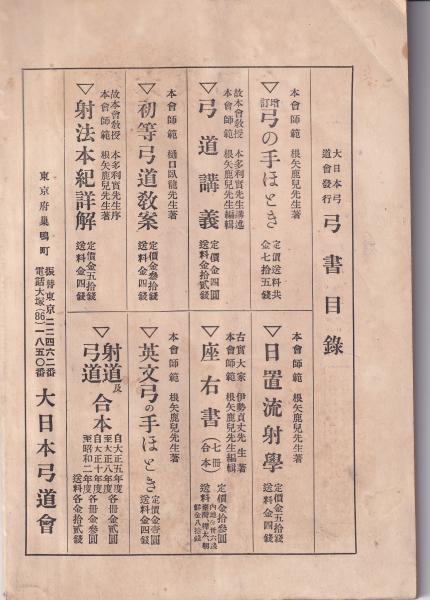 大日本弓
道會發行
弓書目錄
本會師範 根矢鹿兒先生著
▽增訂弓の手ほどき
定價送料共
金七十五錢
故本會教授 本多利實先生講述
本會師範 根矢鹿兒先生編輯
▽弓道講義
定價金四圓
送料金拾貳錢
本會師範 樋口臥龍先生著
▽初等弓道教案
定價金參拾錢
送料金四錢
故本會教授 本多利實先生序
本會師範 根矢鹿兒先生著
▽射法本紀詳解
定價金五拾錢
送料金四錢
本會師範 根矢鹿兒先生著
▽日置流射學
定價金五拾錢
送料金四錢
古實大家 伊勢貞丈先生著
本會師範 根矢鹿兒先生編輯
▽座右書(七冊合本)
定價金拾參圓
送料
內地金卅六錢
臺灣、樺太、朝
鮮金八拾錢
本會師範 根矢鹿兒先生著
▽英文弓の手ほどき
定價金壹圓
送料金四錢
▽射道及弓道合本
自大正五年度
至大正八年度
各冊金貳圓
自大正十年度
至昭和二年度
各冊金參圓
送料各金拾貳錢
東京府巢鴨町
振替東京二二四六二番
電話大塚(86)一八五〇番
大日本弓道會